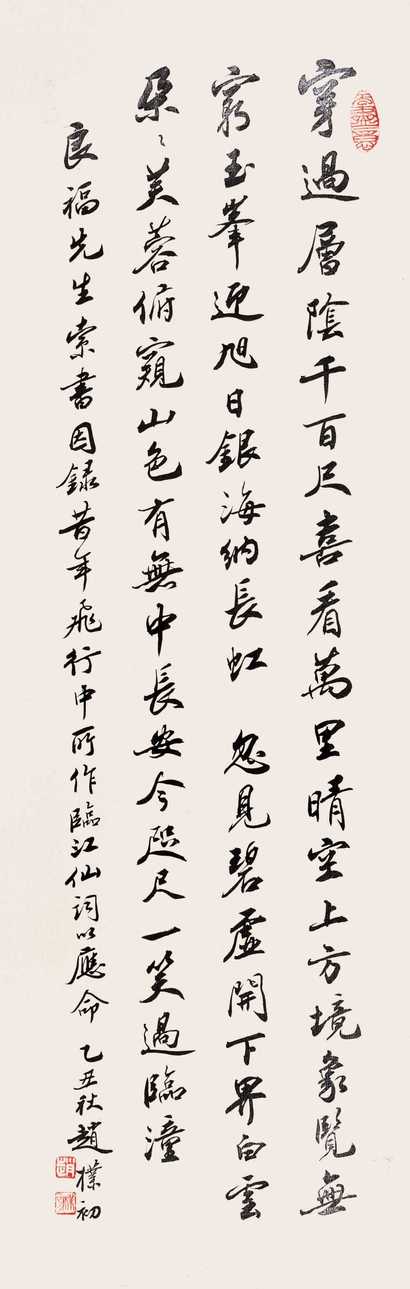 穿過層陰千百尺喜看萬里晴空上方境象覽無
窮玉峯迎旭日銀海納長虹 忽見碧虛開下界白雲
朵〻芙蓉俯窺山色有無中長安今咫尺一笑過臨潼
良福先生索書因録昔年飛行中所作臨江仙詞以應命 乙丑秋趙樸初